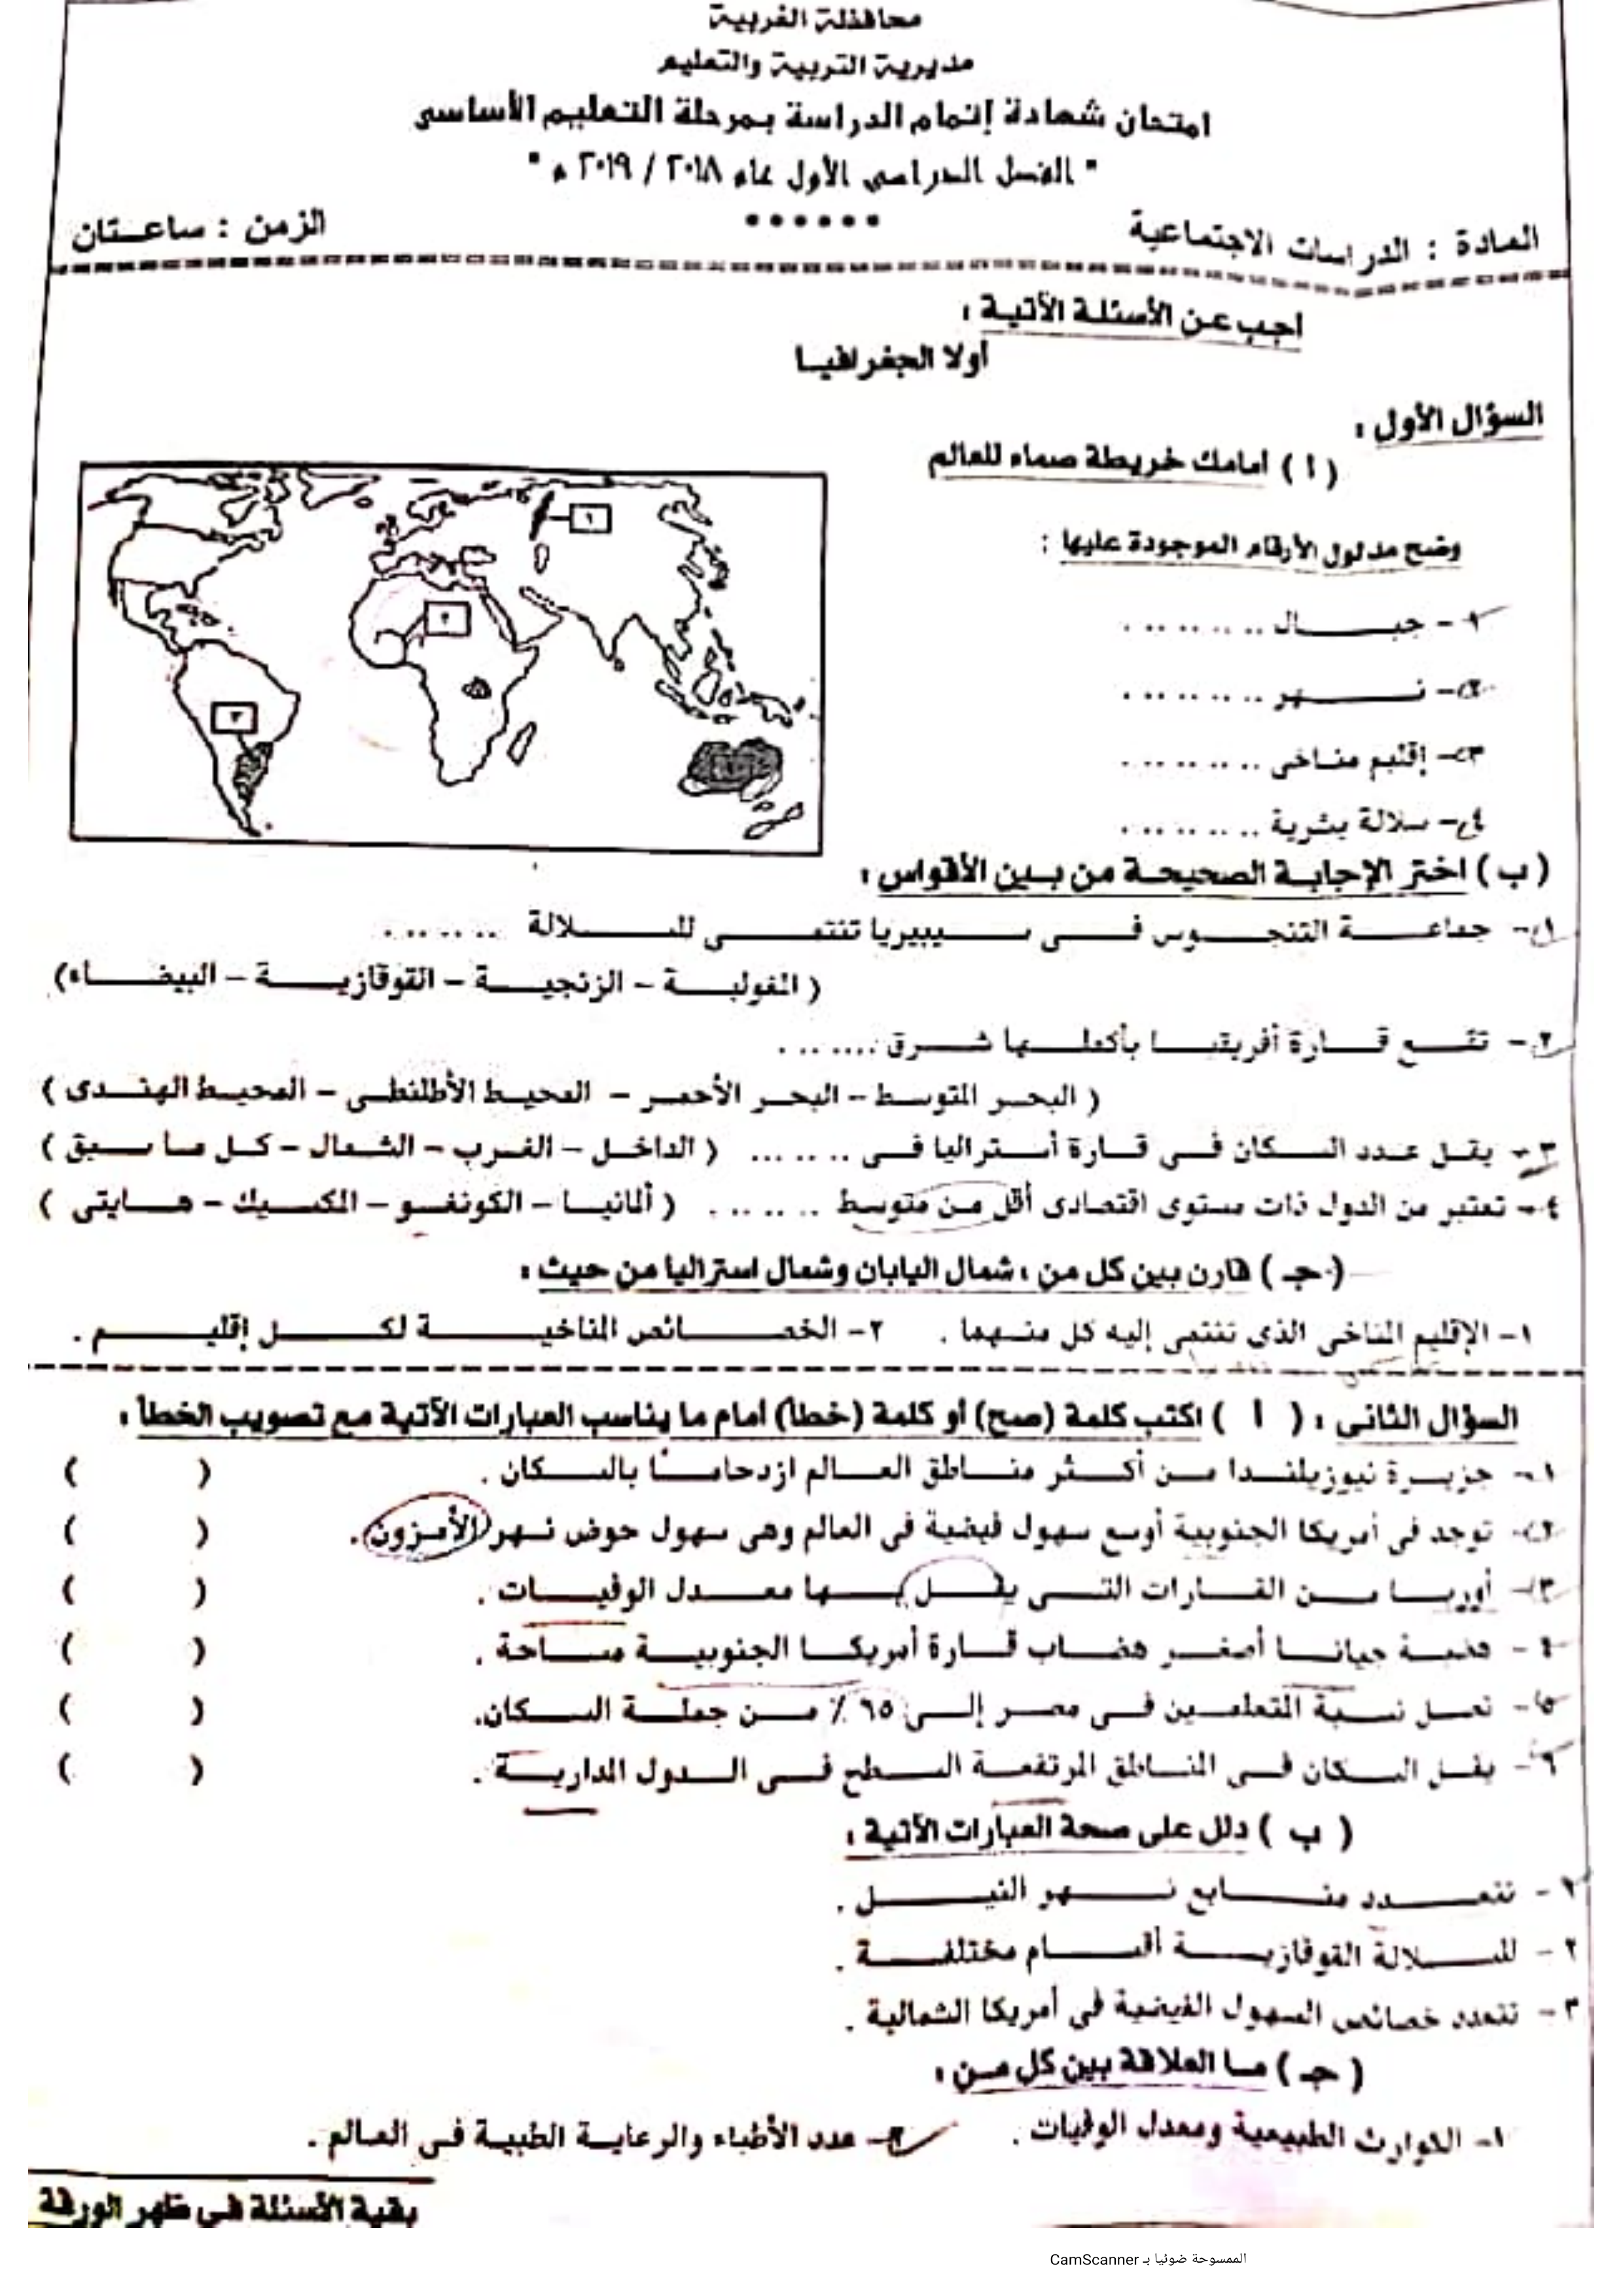 محافظة الغربية
مديرية التربية والتعليم
امتحان شهادة إتمام الدراسة بمرحلة التعليم الأساسى
" الفصل الدراسى الأول عام ٢٠١٨ / ٢٠١٩ م "
المادة : الدراسات الاجتماعية
الزمن : ساعتان
اجب عن الأسئلة الآتية :
أولا الجغرافيا
السؤال الأول :
( أ ) أمامك خريطة صماء للعالم
وضح مدلول الأرقام الموجودة عليها :
١
٢
٣
١- جبال ........
٢- نهر ........
٣- إقليم مناخى ........
٤- سلالة بشرية ........
( ب ) اختر الإجابة الصحيحة من بين الأقواس :
١- جماعة التنجوس فى سيبيريا تنتمى للسلالة .......
( المغولية – الزنجية – القوقازية – البيضاء)
٢- تقع قارة أفريقيا بأكملها شرق .......
( البحر المتوسط – البحر الأحمر – المحيط الأطلنطى – المحيط الهندى )
٣- يقل عدد السكان فى قارة أستراليا فى ....... ( الداخل – الغرب – الشمال – كل ما سبق )
٤- تعتبر من الدول ذات مستوى اقتصادى أقل من متوسط ....... ( ألمانيا – الكونغو – المكسيك – هايتى )
( جـ ) قارن بين كل من : شمال اليابان وشمال استراليا من حيث :
١- الإقليم المناخى الذى تنتمى إليه كل منهما . ٢- الخصائص المناخية لكل إقليم .
السؤال الثانى : ( أ ) اكتب كلمة (صح) أو كلمة (خطأ) أمام ما يناسب العبارات الآتية مع تصويب الخطأ :
١- جزيرة نيوزيلندا من أكثر مناطق العالم ازدحاماً بالسكان . ( )
٢- توجد فى أمريكا الجنوبية أوسع سهول فيضية فى العالم وهى سهول حوض نهر الأمزون . ( )
٣- أوربا من القارات التى يقل بها معدل الوفيات . ( )
٤- هضبة جيانا أصغر هضاب قارة أمريكا الجنوبية مساحة . ( )
٥- تصل نسبة المتعلمين فى مصر إلى ٦٥ ٪ من جملة السكان. ( )
٦- يقل السكان فى المناطق المرتفعة السطح فى الدول المدارية . ( )
( ب ) دلل على صحة العبارات الآتية :
١- تتعدد منابع نهر النيل .
٢- للسلالة القوقازية أقسام مختلفة .
٣- تتعدد خصائص السهول الفيضية فى أمريكا الشمالية .
( جـ ) ما العلاقة بين كل من :
١- الكوارث الطبيعية ومعدل الوفيات . ٢- عدد الأطباء والرعاية الطبية فى العالم .
بقية الأسئلة فى ظهر الورقة
الممسوحة ضوئيا بـ CamScanner